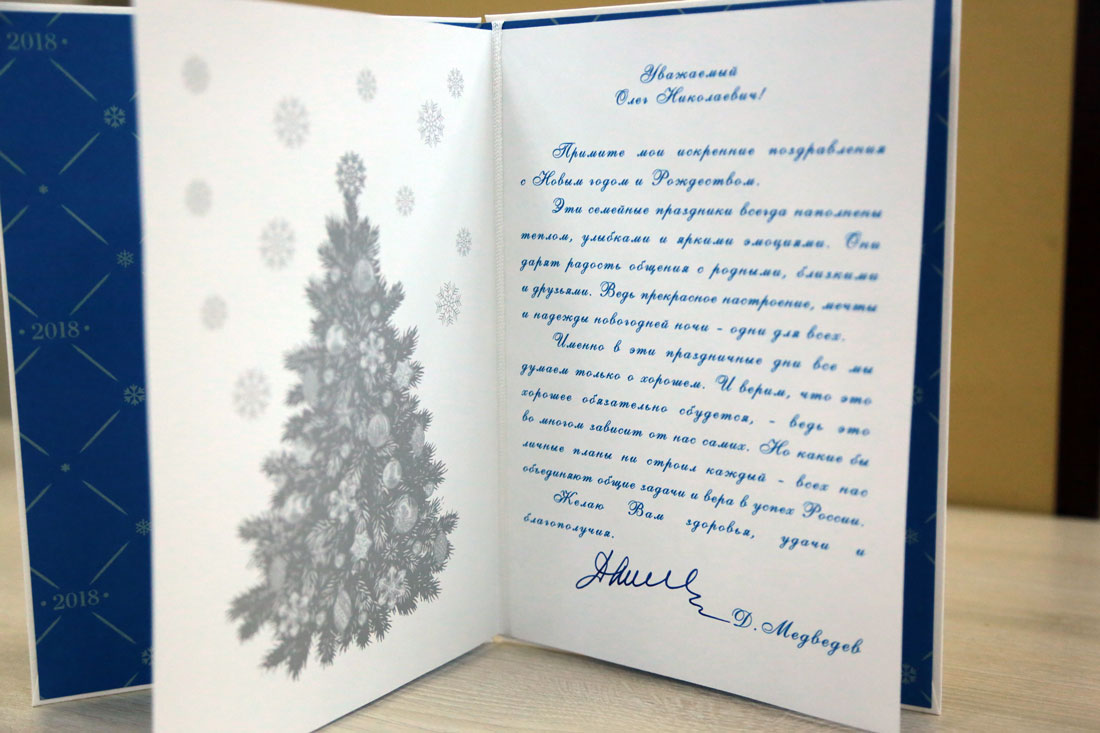 2018
2018
2018
Уважаемый
Олег Николаевич!
Примите мои искренние поздравления
с Новым годом и Рождеством.
Эти семейные праздники всегда наполнены
теплом, улыбками и яркими эмоциями. Они
дарят радость общения с родными, близкими
и друзьями. Ведь прекрасное настроение, мечты
и надежды новогодней ночи - одни для всех.
Именно в эти праздничные дни все мы
думаем только о хорошем. И верим, что это
хорошее обязательно сбудется, - ведь это
во многом зависит от нас самих. Но какие бы
личные планы ни строил каждый - всех нас
объединяют общие задачи и вера в успех России.
Желаю Вам здоровья, удачи и
благополучия.
Д. Медведев